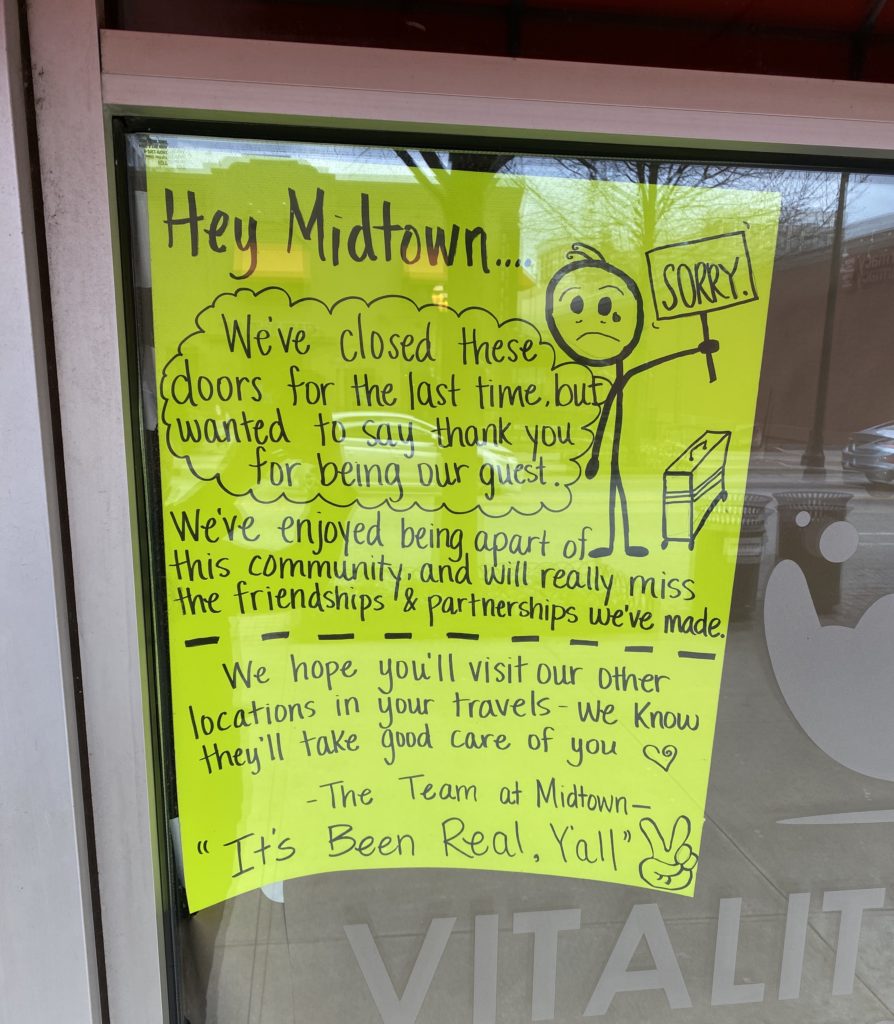 Hey Midtown....
SORRY.
We've closed these
doors for the last time, but
wanted to say thank you
for being our guest.
We've enjoyed being apart of
this community, and will really miss
the friendships & partnerships we've made.
We hope you'll visit our other
locations in your travels - we know
they'll take good care of you ♡
- The Team at Midtown -
"It's Been Real, Y'all"
VITALIT